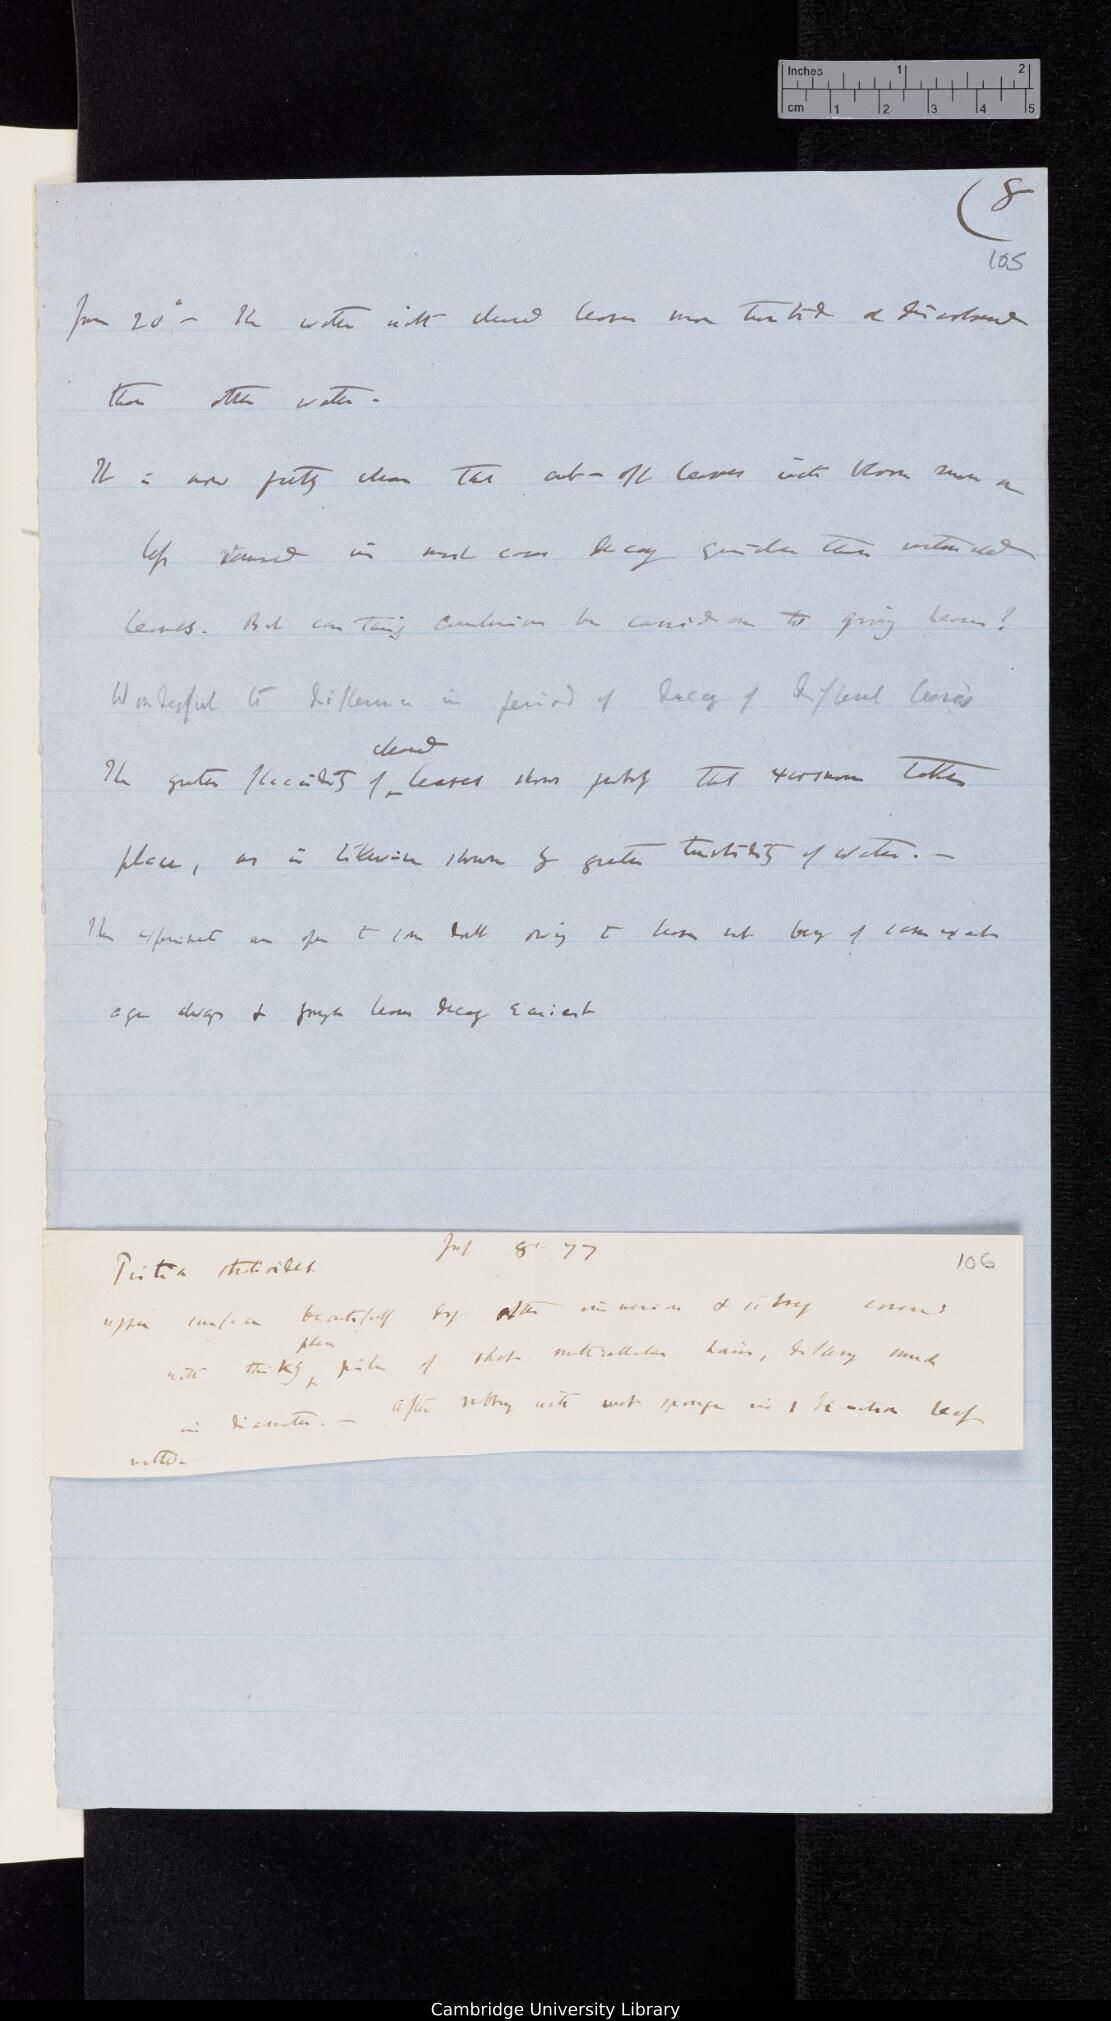 Inches 1 2
cm 1 2 3 4 5
(8
105
20° — The water with cleaned leaves more turbid & discoloured
than other water. —
It is now pretty clear that cut-off leaves with bloom more or
less removed in most cases decay quicker than untouched
leaves. But can this conclusion be carried on to living leaves?
Wonderful the difference in period of decay of different leaves
cleaned
The greater flaccidity of ^ leaves shows that exosmose takes
place, as is likewise shown by greater turbidity of water. —
The experiments are open to some doubt owing to leaves not being of same exact
age always & leaves decay easiest
106
8' 77
Pistia stratiotes
upper surface beautifully dry after immersion & is covered
with thickly ^ of short multicellular hairs, differing much
in diameter. — After rubbing with wet sponge in 1 direction leaf
wetted
Cambridge University Library